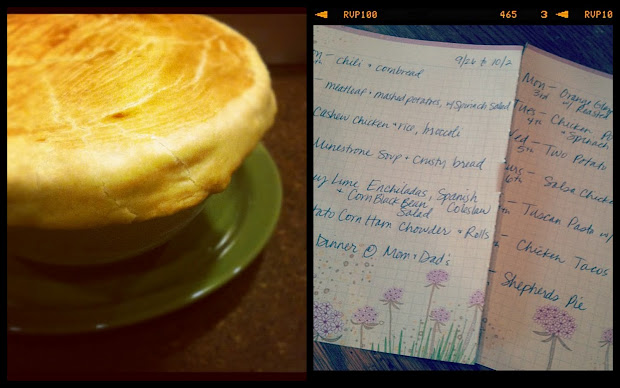 RVP100 465 3 RVP10
9/26 to 10/2
- chili + cornbread
- meatloaf + mashed potatoes, w/ Spinach Salad
Cashew Chicken + rice, broccoli
Minestrone Soup + Crusty bread
Lime Enchiladas, Spanish
+ Corn Black Bean Coleslaw
Salad
Corn Ham Chowder + Rolls
Dinner @ Mom + Dad's
Mon - Orange
3rd w/ Roasted
Tues - Chicken
4th + Spinach
- Two Potato
5th
- Salsa Chicken
6th
- Tuscan Pasta w/
- Chicken Tacos
- Shepherds Pie